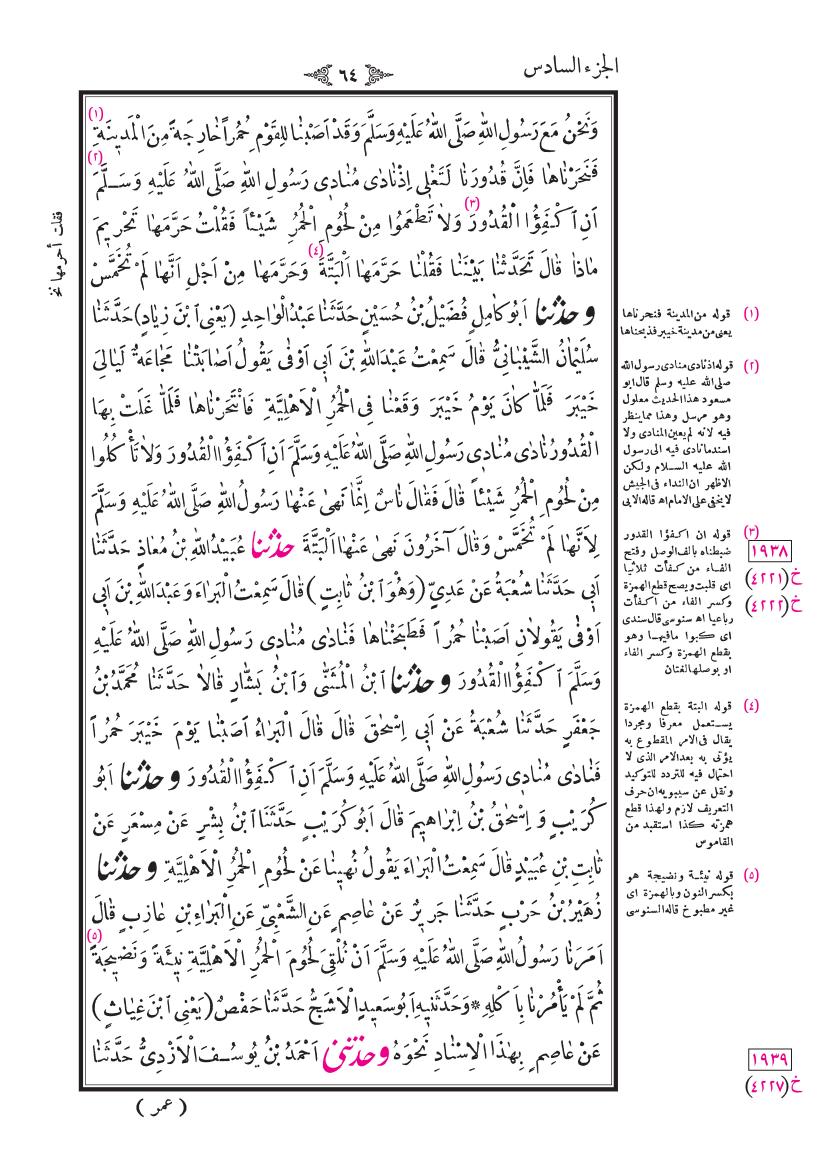 الجزء السادس
٦٤
وَنَحْنُ مَعَ رَسُولِ اللهِ صَلَّى اللهُ عَلَيْهِ وَسَلَّمَ وَقَدْ اَصَبْنَا لِلقَوْمِ حُمُراً خَارِجَةً مِنَ الْمَدِينَةِ (١)
فَنَحَرْنَاهَا فَاِنَّ قُدُورَنَا لَتَغْلِى اِذْ نَادٰى مُنَادِى رَسُولِ اللهِ صَلَّى اللهُ عَلَيْهِ وَسَلَّمَ (٢)
اَنِ اَكْفَؤُا الْقُدُورَ (٣) وَلَا تَطْعَمُوا مِنْ لُحُومِ الْحُمُرِ شَيْئاً فَقُلْتُ حَرَّمَهَا تَحْرِيمَ
مَاذَا قَالَ تَحَدَّثْنَا بَيْنَنَا فَقُلْنَا حَرَّمَهَا اَلْبَتَّةَ (٤) وَحَرَّمَهَا مِنْ اَجْلِ اَنَّهَا لَمْ تُخَمَّسْ
وحدثنا اَبُوكَامِلٍ فُضَيْلُ بْنُ حُسَيْنٍ حَدَّثَنَا عَبْدُ الْوَاحِدِ (يَعْنِى ابْنَ زِيَادٍ) حَدَّثَنَا
سُلَيْمَانُ الشَّيْبَانِىُّ قَالَ سَمِعْتُ عَبْدَاللهِ بْنَ اَبِى اَوْفٰى يَقُولُ اَصَابَتْنَا مَجَاعَةٌ لَيَالِىَ
خَيْبَرَ فَلَمَّا كَانَ يَوْمُ خَيْبَرَ وَقَعْنَا فِى الْحُمُرِ الْاَهْلِيَّةِ فَانْتَحَرْنَاهَا فَلَمَّا غَلَتْ بِهَا
الْقُدُورُ نَادٰى مُنَادِى رَسُولِ اللهِ صَلَّى اللهُ عَلَيْهِ وَسَلَّمَ اَنِ اَكْفَؤُا الْقُدُورَ وَلَا تَأْكُلُوا
مِنْ لُحُومِ الْحُمُرِ شَيْئاً قَالَ فَقَالَ نَاسٌ اِنَّمَا نَهٰى عَنْهَا رَسُولُ اللهِ صَلَّى اللهُ عَلَيْهِ وَسَلَّمَ
لِاَنَّهَا لَمْ تُخَمَّسْ وَقَالَ آخَرُونَ نَهٰى عَنْهَا اَلْبَتَّةَ حدثنا عُبَيْدُ اللهِ بْنُ مُعَاذٍ حَدَّثَنَا
اَبِى حَدَّثَنَا شُعْبَةُ عَنْ عَدِىٍّ (وَهُوَ ابْنُ ثَابِتٍ) قَالَ سَمِعْتُ الْبَرَاءَ وَعَبْدَ اللهِ بْنَ اَبِى
اَوْفٰى يَقُولَانِ اَصَبْنَا حُمُراً فَطَبَخْنَاهَا فَنَادٰى مُنَادِى رَسُولِ اللهِ صَلَّى اللهُ عَلَيْهِ
وَسَلَّمَ اَكْفَؤُا الْقُدُورَ وحدثنا ابْنُ الْمُثَنّٰى وَابْنُ بَشَّارٍ قَالَا حَدَّثَنَا مُحَمَّدُ بْنُ
جَعْفَرٍ حَدَّثَنَا شُعْبَةُ عَنْ اَبِى اِسْحٰقَ قَالَ قَالَ الْبَرَاءُ اَصَبْنَا يَوْمَ خَيْبَرَ حُمُراً
فَنَادٰى مُنَادِى رَسُولِ اللهِ صَلَّى اللهُ عَلَيْهِ وَسَلَّمَ اَنِ اَكْفَؤُا الْقُدُورَ وحدثنا اَبُو
كُرَيْبٍ وَ اِسْحٰقُ بْنُ اِبْرَاهِيمَ قَالَ اَبُوكُرَيْبٍ حَدَّثَنَا ابْنُ بِشْرٍ عَنْ مِسْعَرٍ عَنْ
ثَابِتِ بْنِ عُبَيْدٍ قَالَ سَمِعْتُ الْبَرَاءَ يَقُولُ نُهِينَا عَنْ لُحُومِ الْحُمُرِ الْاَهْلِيَّةِ وحدثنا
زُهَيْرُ بْنُ حَرْبٍ حَدَّثَنَا جَرِيرٌ عَنْ عَاصِمٍ عَنِ الشَّعْبِىِّ عَنِ الْبَرَاءِ بْنِ عَازِبٍ قَالَ
اَمَرَنَا رَسُولُ اللهِ صَلَّى اللهُ عَلَيْهِ وَسَلَّمَ اَنْ نُلْقِىَ لُحُومَ الْحُمُرِ الْاَهْلِيَّةِ نِيئَةً وَنَضِيجَةً (٥)
ثُمَّ لَمْ يَأْمُرْنَا بِاَكْلِهِ * وَحَدَّثَنِيهِ اَبُو سَعِيدٍ الْاَشَجُّ حَدَّثَنَا حَفْصٌ (يَعْنِى ابْنَ غِيَاثٍ)
عَنْ عَاصِمٍ بِهٰذَا الْاِسْنَادِ نَحْوَهُ وحدثنى اَحْمَدُ بْنُ يُوسُفَ الْاَزْدِىُّ حَدَّثَنَا
(عمر)
فقلت أحرمها نخ
(١) قوله من المدينة فنحرناها
يعنى من مدينة خيبر فذبحناها
(٢) قوله اذ نادى منادى رسول الله
صلى الله عليه وسلم قال ابو
مسعود هذا الحديث معلول
وهو مرسل وهذا مما ينظر
فيه لانه لم يعين المنادى ولا
اسند ما نادى فيه الى رسول
الله عليه السلام ولكن
الاظهر ان النداء فى الجيش
لا يخفى على الامام اه قاله الابى
(٣) قوله ان اكفؤا القدور
ضبطناه بالف الوصل وفتح
الفاء من كفأت ثلاثيا
اى قلبت ويصح قطع الهمزة
وكسر الفاء من اكفأت
رباعيا اه سنوسى قال سندى
اى كبوا ما فيها وهو
بقطع الهمزة وكسر الفاء
او بوصلها لغتان
(٤) قوله البتة بقطع الهمزة
يستعمل معرفا ومجردا
يقال فى الامر المقطوع به
يؤتى به بعد الامر الذى لا
احتمال فيه للتردد للتوكيد
ونقل عن سيبويه ان حرف
التعريف لازم ولهذا قطع
همزته كذا استفيد من
القاموس
(٥) قوله نيئة ونضيجة هو
بكسر النون وبالهمزة اى
غير مطبوخ قاله السنوسى
١٩٣٨
خ (٤٢٢١)
خ (٤٢٢٢)
١٩٣٩
خ (٤٢٢٧)